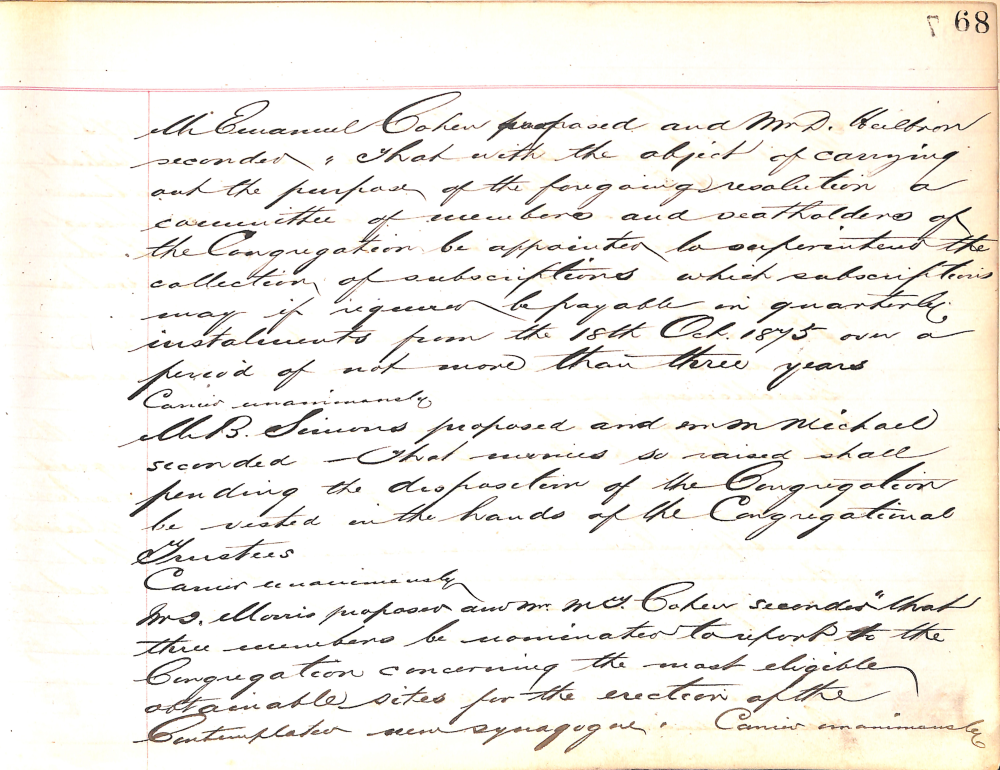 68
Mr Emanuel Cohen proposed and Mr D. Heilbron
seconded, "That with the object of carrying
out the purpose of the foregoing resolution a
committee of members and seatholders of
the Congregation be appointed to superintend the
collection of subscriptions which subscriptions
may if required be payable in quarterly
instalments from the 18th Oct. 1875 over a
period of not more than three years
Carried unanimously
Mr B. Simons proposed and Mr M Michael
seconded - That monies so raised shall
pending the disposition of the Congregation
be vested in the hands of the Congregational
Trustees
Carried unanimously
Mr S. Morris proposed and Mr. M. J. Cohen seconded "that
three members be nominated to report to the
Congregation concerning the most eligible
obtainable sites for the erection of the
Contemplated new synagogue. Carried unanimously